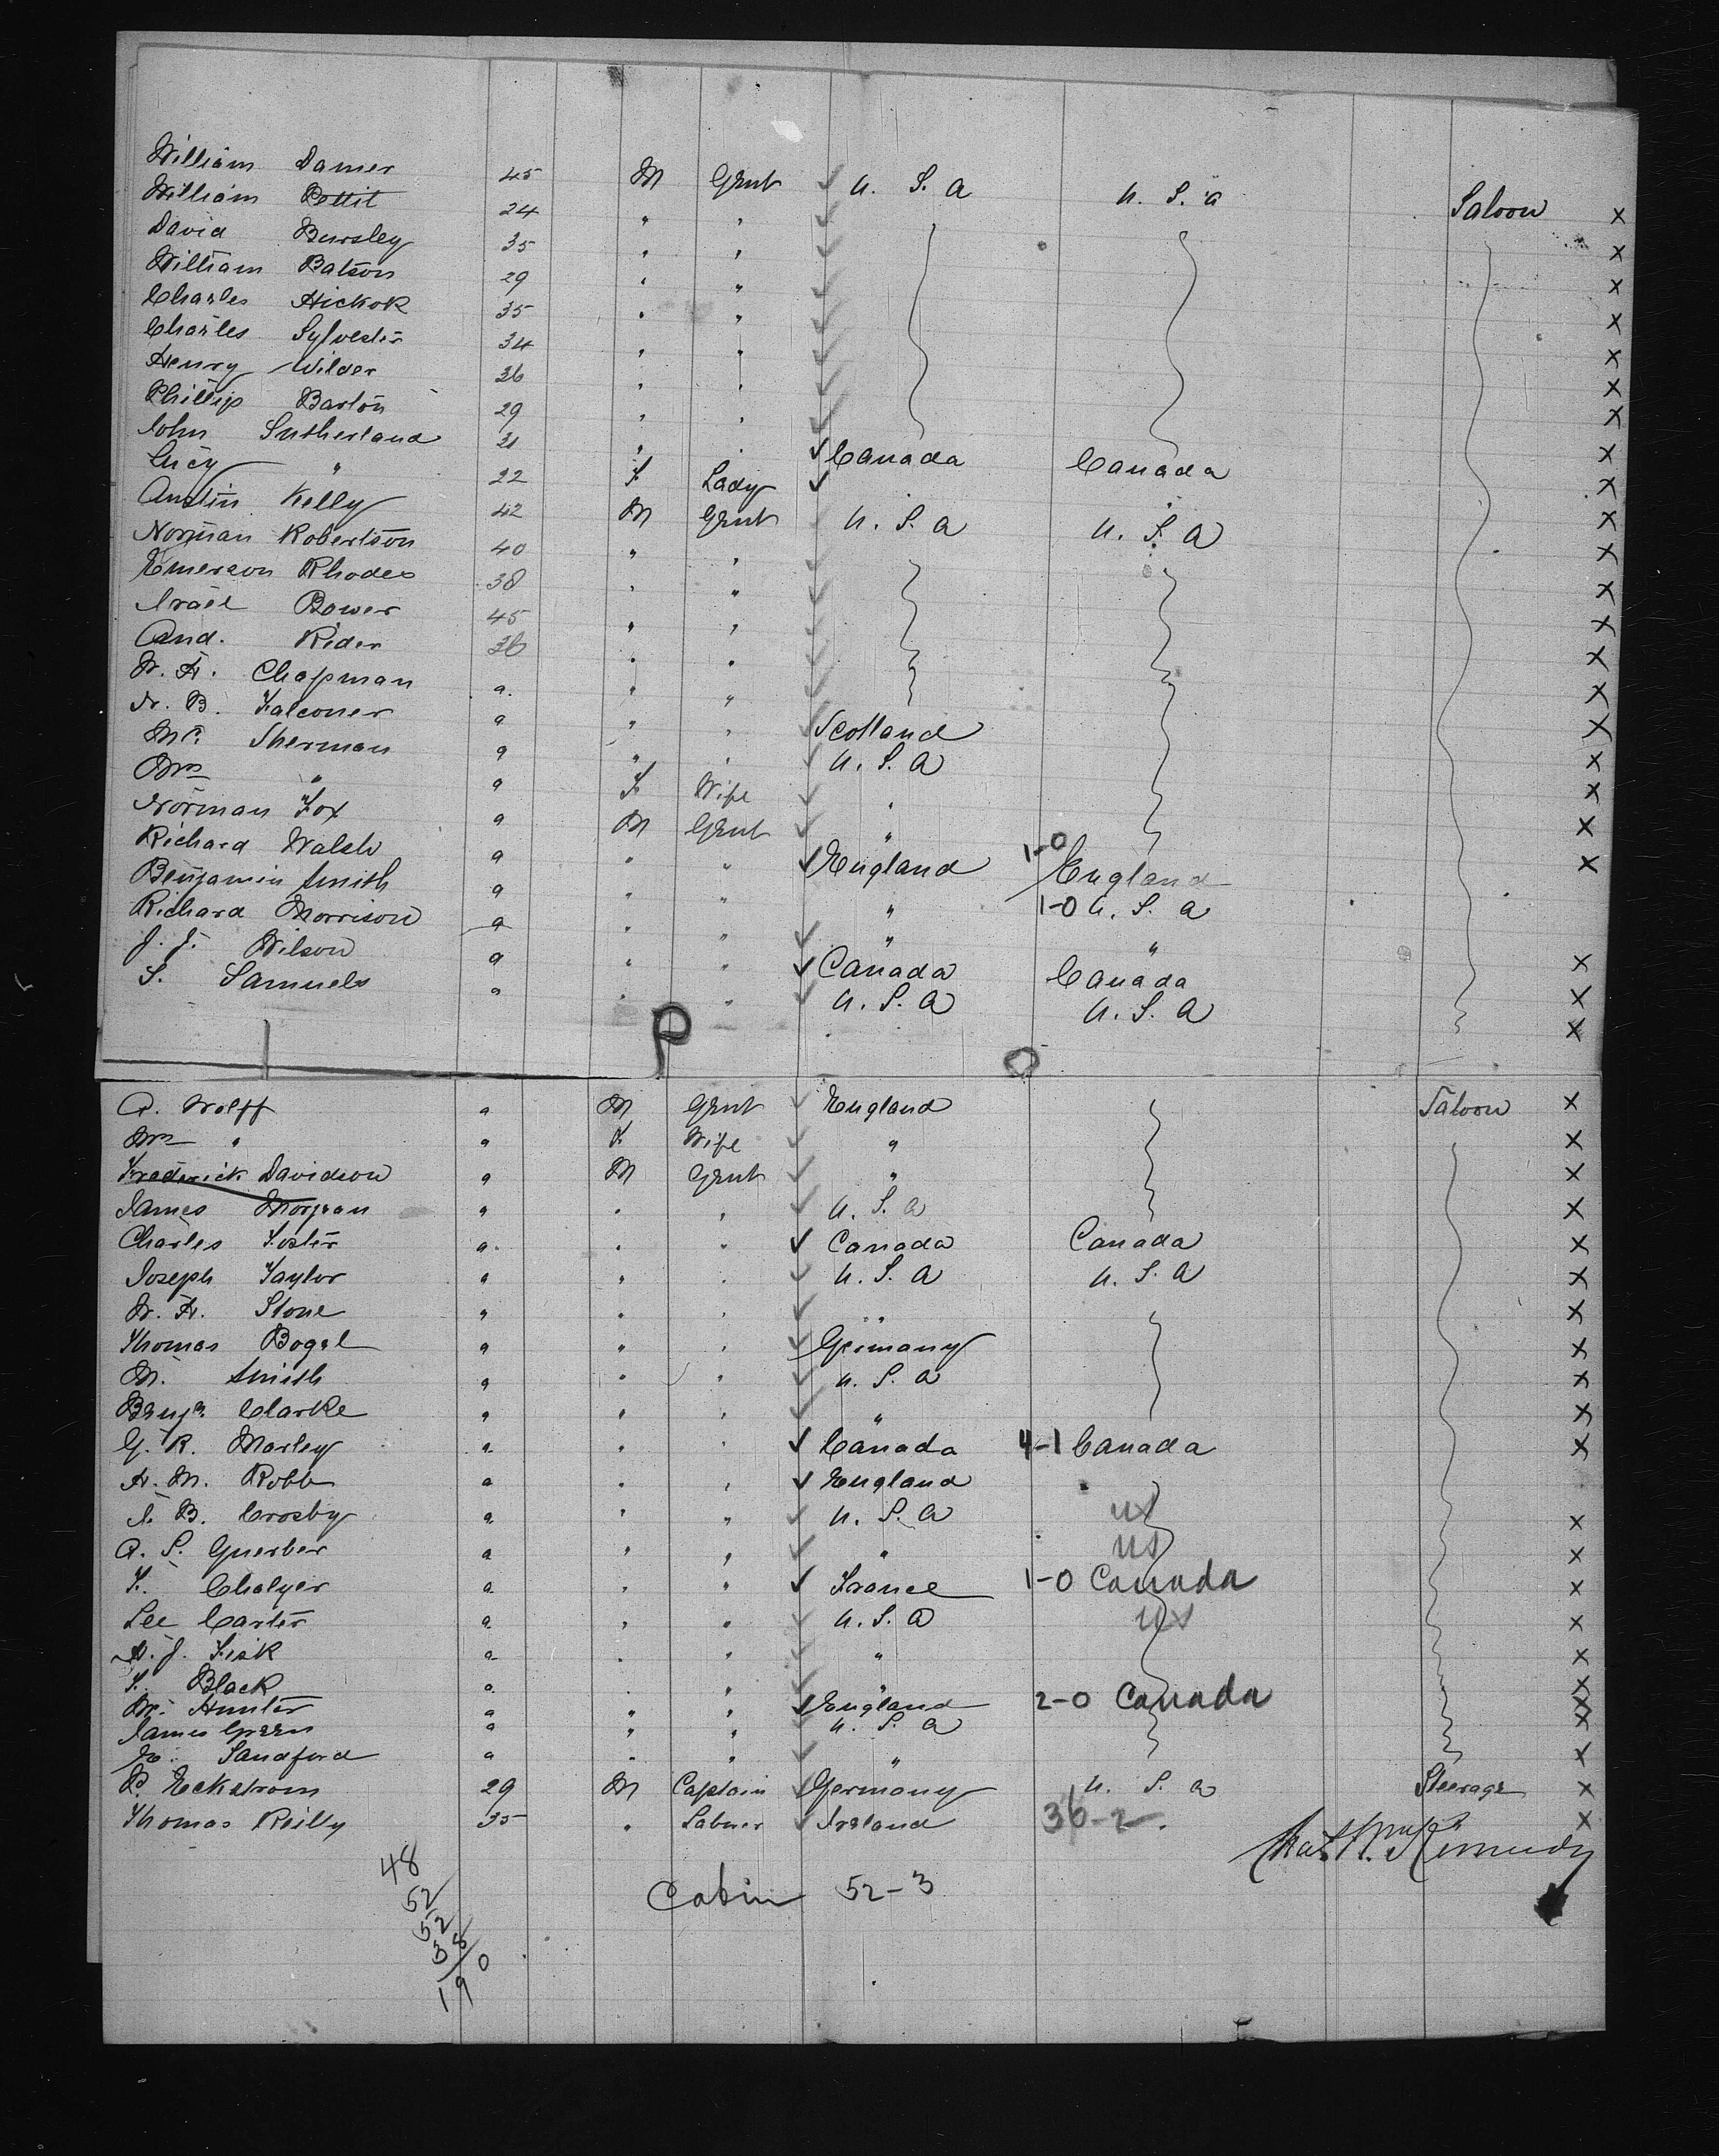 William Damer 45 M Gent ✓ U. S. A U. S. A Saloon x
William Pettit 24 " " ✓ x
David Bursley 35 " " ✓ x
William Batson 29 " " ✓ x
Charles Hickok 35 " " ✓ x
Charles Sylvester 34 " " ✓ x
Henry Wilder 36 " " ✓ x
Phillip Barton 29 " " ✓ x
John Sutherland 31 " " ✓ Canada Canada x
Lucy " 22 F Lady ✓ x
Austin Kelly 42 M Gent U. S. A U. S. A x
Norman Robertson 40 " " ✓ x
Emerson Rhodes 38 " " ✓ x
Israel Bower 45 " " ✓ x
And. Rider 36 " " ✓ x
W. H. Chapman a. " " ✓ x
N. B. Falconer a " " ✓ Scotland x
Mr. Sherman a " " ✓ U. S. A x
Mrs " a F Wife ✓ " x
Norman Fox a M Gent ✓ " x
Richard Walsh a " " ✓ England 1-0 England x
Benjamin Smith a " " " 1-0 U. S. A
Richard Morrison a " " ✓ " "
J. J. Wilson a " " ✓ Canada Canada x
S. Samuels a " " ✓ U. S. A U. S. A x
P O
A. Wolff a M Gent ✓ England Saloon x
Mrs " a F Wife ✓ " x
Frederick Davidson a M Gent ✓ " x
James Morgan " " " ✓ U. S. A x
Charles Foster a. " " ✓ Canada Canada x
Joseph Taylor a " " ✓ U. S. A U. S. A x
W. H. Stone " " " ✓ " x
Thomas Bogel a " " ✓ Germany x
M. Smith a " " ✓ U. S. A x
Benjn. Clarke a " " ✓ " x
G. R. Marley a. " " ✓ Canada 4-1 Canada x
H. M. Robb a " " ✓ England
B. Crosby a. " " ✓ U. S. A US x
A. S. Guerber a " " ✓ " US x
F. Chalyer a. " " ✓ France 1-0 Canada x
Lee Carter a " " ✓ U. S. A US x
H. J. Fisk a " " ✓ " x
F. Black a. " " ✓ " x
Mr. Hunter a " " ✓ England 2-0 Canada x
James Green a " " ✓ U. S. A x
Sandford a " " ✓ " x
P. Eckstrom 29 M Captain ✓ Germany U. S. A Steerage x
Thomas Reilly 35 " Labrer ✓ Ireland 36-2 x
48
52
52
38
190
Cabin 52-3